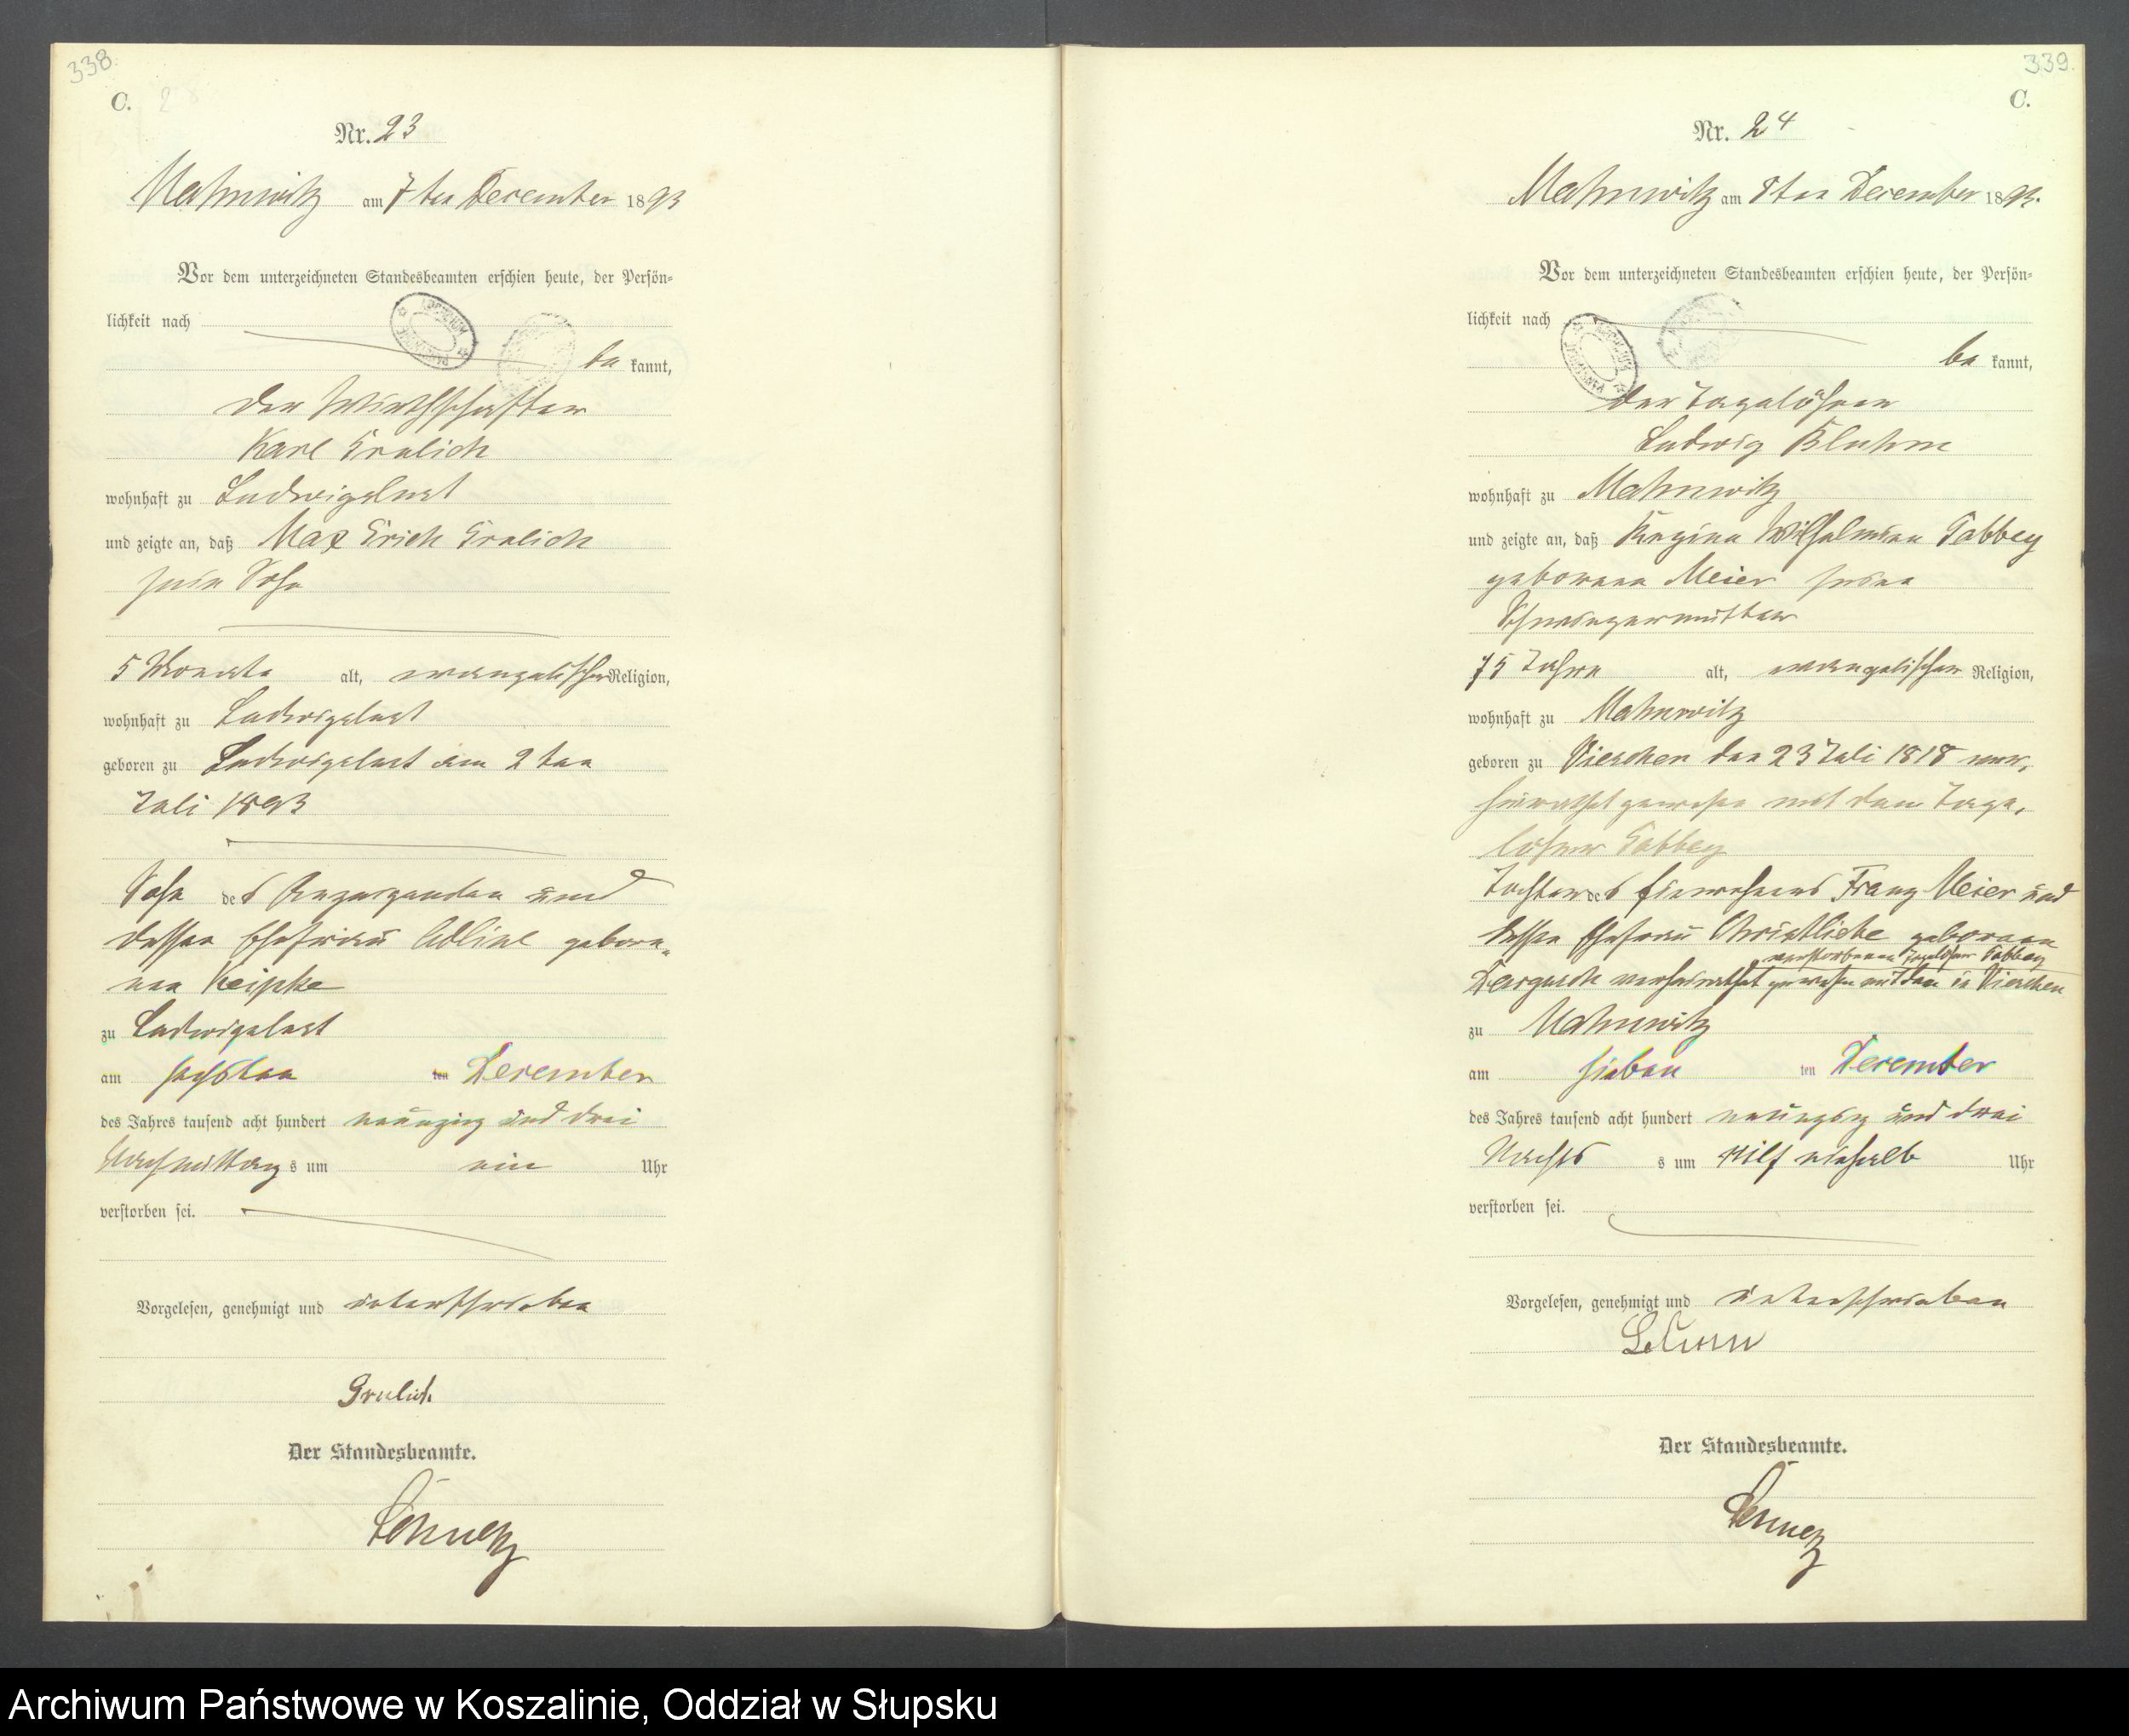 338.
C.
Nr. 23
Mahnwitz am 7ten December 1893
Vor dem unterzeichneten Standesbeamten erschien heute, der Persön-
lichkeit nach
be kannt,
der Wirthschafter
Karl Grulich
wohnhaft zu Ludwigslust
und zeigte an, daß Max Erich Grulich
sein Sohn
5 Monate alt, evangelischer Religion,
wohnhaft zu Ludwigslust
geboren zu Ludwigslust am 2ten
Juli 1893
Sohn des Anzeigenden und
dessen Ehefrau Adline gebore-
nen Keipke
zu Ludwigslust
am sechsten ten December
des Jahres tausend acht hundert neunzig und drei
Nachmittag s um ein Uhr
verstorben sei.
Vorgelesen, genehmigt und unterschrieben
Grulich
Der Standesbeamte.
339.
C.
Nr. 24
Mahnwitz am 8ten December 1893.
Vor dem unterzeichneten Standesbeamten erschien heute, der Persön-
lichkeit nach
be kannt,
der Tagelöhner
Ludwig Bluhm
wohnhaft zu Mahnwitz
und zeigte an, daß Regine Wilhelmine Tabbey
geborene Meier seine
Schwiegermutter
75 Jahre alt, evangelischer Religion,
wohnhaft zu Mahnwitz
geboren zu Vieschen den 23 Juli 1818 ver-
heirathet gewesen mit dem Tage-
löhner Tabbey
Tochter des Einwohners Franz Meier und
dessen Ehefrau Christliebe geborenen
verstorbenen Tagelöhner Tabbey
verheirathet gewesen mit dem in Vieschen
zu Mahnwitz
am sieben ten December
des Jahres tausend acht hundert neunzig und drei
Nachts s um elf einhalb Uhr
verstorben sei.
Vorgelesen, genehmigt und unterschrieben
Der Standesbeamte.
Archiwum Państwowe w Koszalinie, Oddział w Słupsku